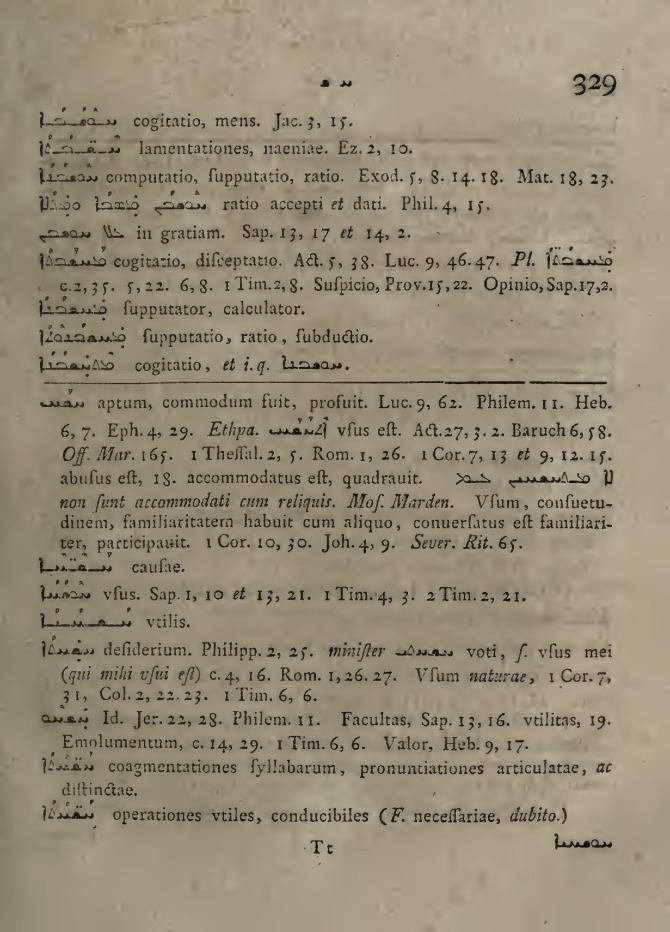 ܚ ܫ 329
ܚܘܫܒܐ cogitatio, mens. Jac. 3, 15.
ܚܫ̈ܒܬܐ lamentationes, naeniae. Ez. 2, 10.
ܚܘܫܒܢܐ computatio, ſupputatio, ratio. Exod. 5, 8. 14. 18. Mat. 18, 23.
ܚܘܫܒܢ ܡܣܒܐ ܘܡܬܠܐ ratio accepti et dati. Phil. 4, 15.
ܥܠ ܚܘܫܒܢ in gratiam. Sap. 13, 17 et 14, 2.
ܡܚܫܒܬܐ cogitatio, diſceptatio. Act. 5, 38. Luc. 9, 46.47. Pl. ܡܚܫ̈ܒܬܐ
c.2,35. 5,22. 6,8. 1 Tim.2,8. Suſpicio, Prov.15,22. Opinio, Sap.17,2.
ܡܚܫܒܢܐ ſupputator, calculator.
ܡܚܫܒܢܘܬܐ ſupputatio, ratio, ſubductio.
ܡܬܚܫܒܢܐ cogitatio, et i. q. ܚܘܫܒܢܐ.
ܚܫܚ aptum, commodum fuit, profuit. Luc. 9, 62. Philem. 11. Heb.
6, 7. Eph. 4, 29. Ethpa. ܐܬܚܫܚ vſus eſt. Act.27, 3. 2. Baruch 6, 58.
Off. Mar. 165. 1 Theſſal. 2, 5. Rom. 1, 26. 1 Cor. 7, 13 et 9, 12. 15.
abuſus eſt, 18. accommodatus eſt, quadrauit. ܠܐ ܡܬܚܫܚܝܢ ܥܡ
non ſunt accommodati cum reliquis. Moſ. Marden. Vſum, conſuetu-
dinem, familiaritatem habuit cum aliquo, conuerſatus eſt familiari-
ter, participauit. 1 Cor. 10, 30. Joh. 4, 9. Sever. Rit. 65.
ܚܫ̈ܚܐ cauſae.
ܚܘܫܚܐ vſus. Sap. 1, 10 et 13, 21. 1 Tim. 4, 3. 2 Tim. 2, 21.
vtilis.
ܚܫܚܬܐ deſiderium. Philipp. 2, 25. miniſter voti, ſ. vſus mei
(qui mihi vſui eſt) c. 4, 16. Rom. 1, 26. 27. Vſum naturae, 1 Cor. 7,
31, Col. 2, 22. 23. 1 Tim. 6, 6.
ܚܫܚܘ Id. Jer. 22, 28. Philem. 11. Facultas, Sap. 13, 16. vtilitas, 19.
Emolumentum, c. 14, 29. 1 Tim. 6, 6. Valor, Heb. 9, 17.
ܚܫ̈ܚܬܐ coagmentationes ſyllabarum, pronuntiationes articulatae, ac
diſtinctae.
ܚܫ̈ܚܬܐ operationes vtiles, conducibiles (F. neceſſariae, dubito.)
Tt